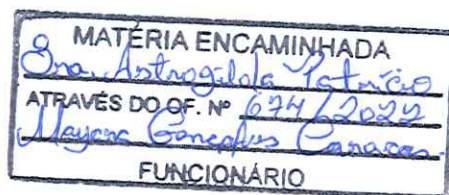 MATÉRIA ENCAMINHADA
Sra. Astrogilda Patrício
ATRAVÉS DO OF. Nº 674/2022
Mayara Gonçalves Canavas.
FUNCIONÁRIO